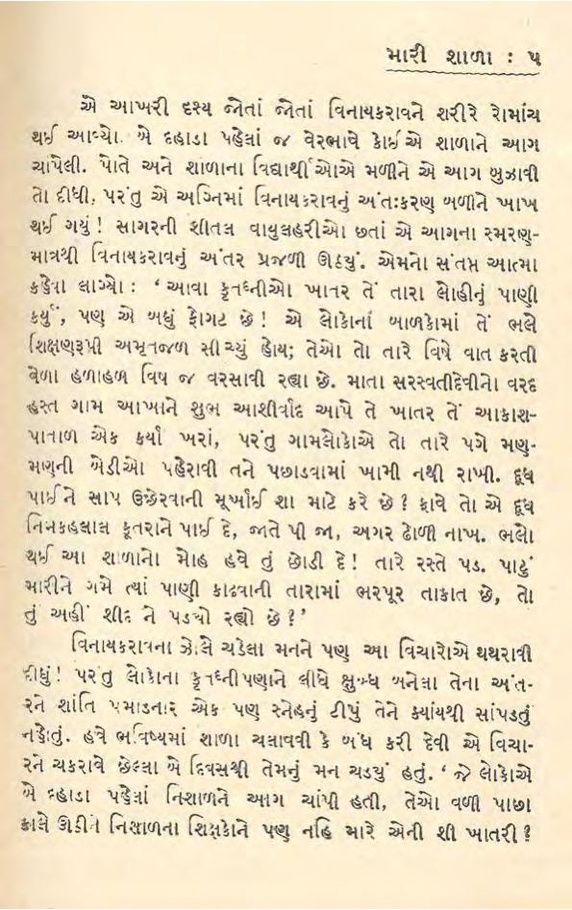 મારી શાળા : ૫
એ આખરી દૃશ્ય જોતાં જોતાં વિનાયકરાવને શરીરે રોમાંચ
થઈ આવ્યો. બે દહાડા પહેલાં જ વેરભાવે કોઈએ શાળાને આગ
ચાંપેલી. પોતે અને શાળાના વિદ્યાર્થીઓએ મળીને એ આગ બુઝાવી
તો દીધી, પરંતુ એ અગ્નિમાં વિનાયકરાવનું અંતઃકરણ બળીને ખાખ
થઈ ગયું! સાગરની શીતલ વાયુલહરીઓ છતાં એ આગના સ્મરણ-
માત્રથી વિનાયકરાવનું અંતર પ્રજળી ઊઠ્યું. એમનો સંતપ્ત આત્મા
કહેવા લાગ્યો: ‘આવા કૃતઘ્નીઓ ખાતર તેં તારા લોહીનું પાણી
કર્યું, પણ એ બધું ફોગટ છે! એ લોકોનાં બાળકોમાં તેં ભલે
શિક્ષણરૂપી અમૃતજળ સીંચ્યું હોય; તેઓ તો તારે વિષે વાત કરતી
વેળા હળાહળ વિષ જ વરસાવી રહ્યા છે. માતા સરસ્વતીદેવીનો વરદ
હસ્ત ગામ આખાને શુભ આશીર્વાદ આપે તે ખાતર તેં આકાશ-
પાતાળ એક કર્યાં ખરાં, પરંતુ ગામલોકોએ તો તારે પગે મણ-
મણની બેડીઓ પહેરાવી તને પછાડવામાં ખામી નથી રાખી. દૂધ
પાઈને સાપ ઉછેરવાની મૂર્ખાઈ શા માટે કરે છે? ફાવે તો એ દૂધ
નિમકહલાલ કૂતરાને પાઈ દે, જાતે પી જા, અગર ઢોળી નાખ. ભલો
થઈ આ શાળાનો મોહ હવે તું છોડી દે! તારે રસ્તે પડ. પાટું
મારીને ગમે ત્યાં પાણી કાઢવાની તારામાં ભરપૂર તાકાત છે, તો
તું અહીં શીદ ને પડ્યો રહ્યો છે?’
વિનાયકરાવના ઝોલે ચડેલા મનને પણ આ વિચારોએ થથરાવી
દીધું! પરંતુ લોકોના કૃતઘ્નીપણાને લીધે ક્ષુબ્ધ બનેલા તેના અંત-
રને શાંતિ પમાડનાર એક પણ સ્નેહનું ટીપું તેને ક્યાંયથી સાંપડતું
નહોતું. હવે ભવિષ્યમાં શાળા ચલાવવી કે બંધ કરી દેવી એ વિચા-
રને ચકરાવે છેલ્લા બે દિવસથી તેમનું મન ચડ્યું હતું. ‘જે લોકોએ
બે દહાડા પહેલાં નિશાળને આગ ચાંપી હતી, તેઓ વળી પાછા
કાલે ઊઠીને નિશાળના શિક્ષકોને પણ નહિ મારે એની શી ખાતરી?